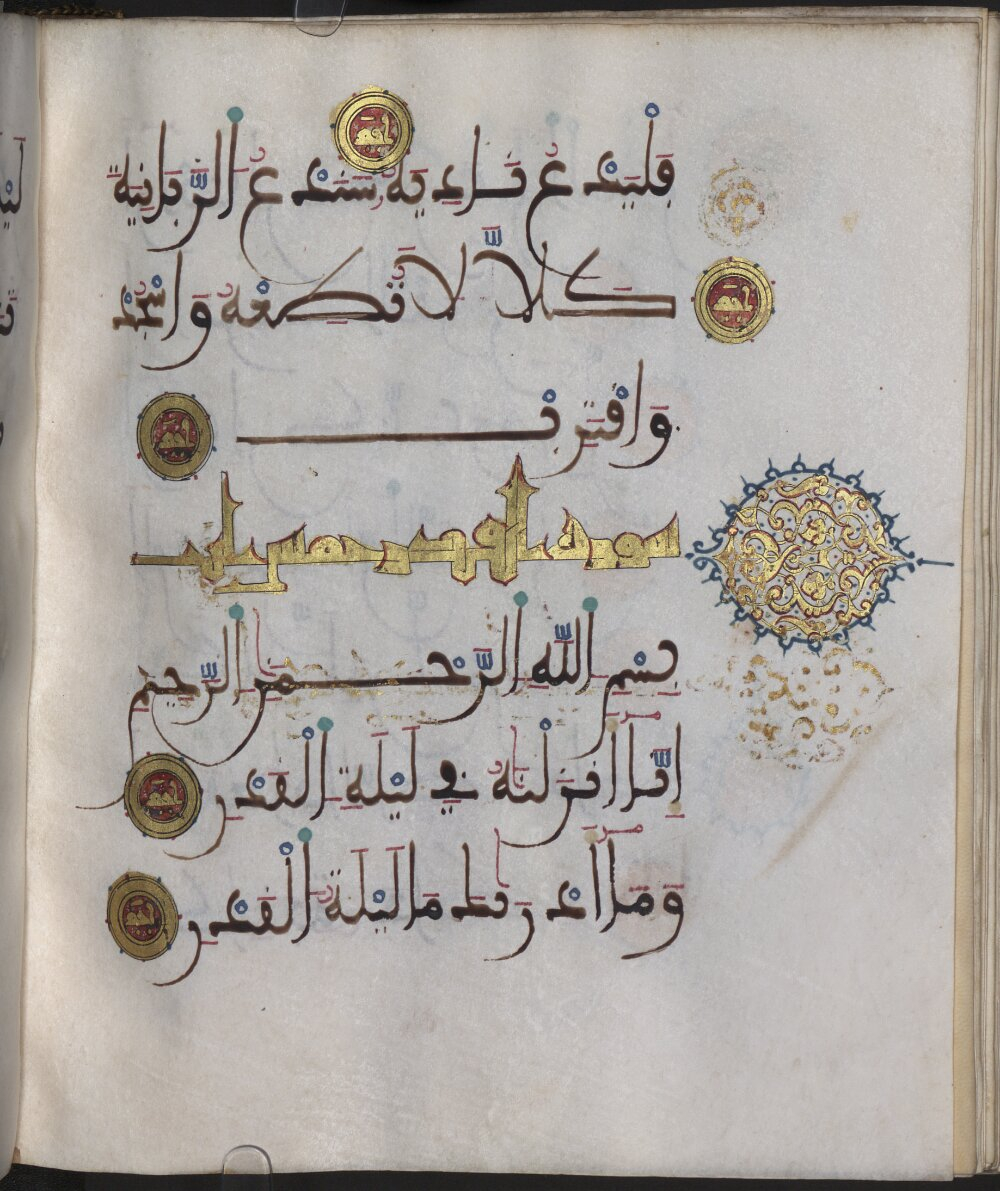 فَلْيَدْعُ نَادِيَهُ سَنَدْعُ الزَّبَانِيَةَ
كَلَّا لَا تُطِعْهُ وَاسْجُدْ
وَاقْتَرِبْ
سورة القدر خمس ايت
بِسْمِ اللَّهِ الرَّحْمَٰنِ الرَّحِيمِ
إِنَّا أَنْزَلْنَٰهُ فِي لَيْلَةِ الْقَدْرِ
وَمَا أَدْرَىٰكَ مَا لَيْلَةُ الْقَدْرِ